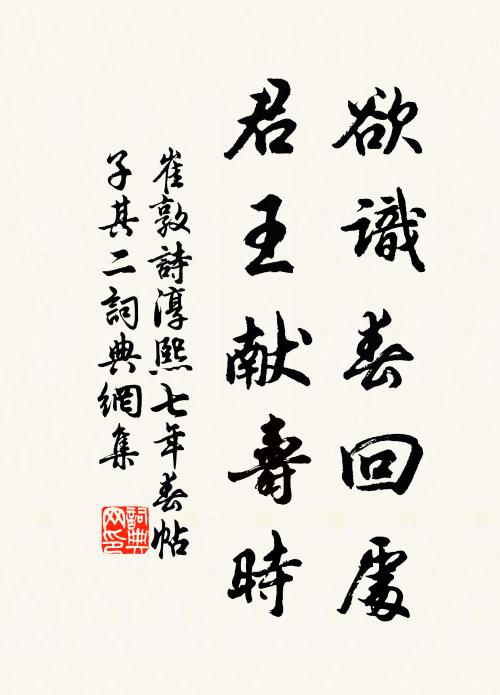 欲識春回處
君王献壽時
崔敦詩淳熙七年春帖
子其二詞典網集
詞典网印